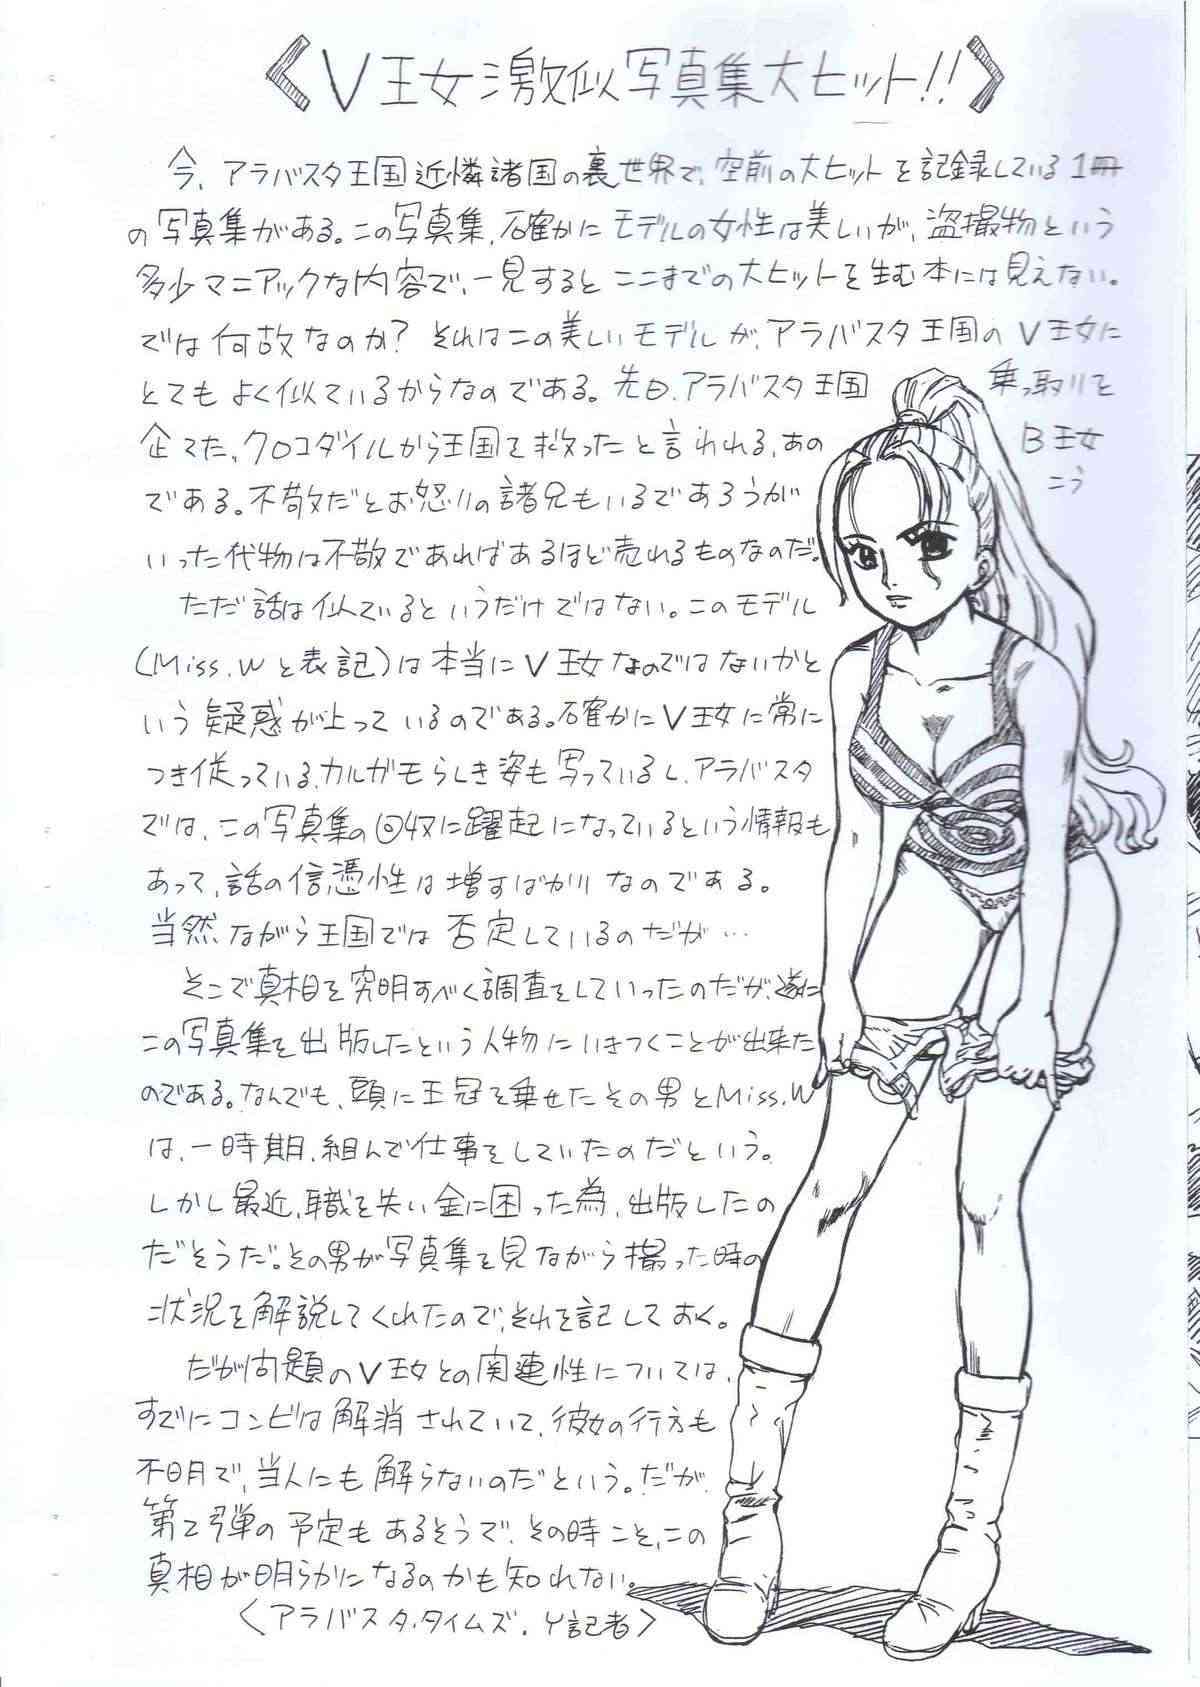 《V王女激似写真集大ヒット!!》
今、アラバスタ王国近隣諸国の裏世界で、空前の大ヒットを記録している1冊
の写真集がある。この写真集、確かにモデルの女性は美しいが、盗撮物という
多少マニアックな内容で、一見するとここまでの大ヒットを生む本には見えない。
では何故なのか? それはこの美しいモデルが、アラバスタ王国のV王女に
とてもよく似ているからなのである。先日、アラバスタ王国 乗っ取りを
企てた、クロコダイルから王国を救ったと言われる、あの B王女
である。不敬だとお怒りの諸兄もいるであろうが こう
いった代物は不敬であればあるほど売れるものなのだ。
ただ話は似ているというだけではない。このモデル
(Miss.Wと表記)は本当にV王女なのではないかと
いう疑惑が上っているのである。確かにV王女に常に
つき従っている、カルガモらしき姿も写っているし、アラバスタ
では、この写真集の回収に躍起になっているという情報も
あって、話の信憑性は増すばかりなのである。
当然ながら王国では否定しているのだが…
そこで真相を究明すべく調査をしていったのだが、遂に
この写真集を出版したという人物にいきつくことが出来た
のである。なんでも、頭に王冠を乗せたその男とMiss.W
は、一時期、組んで仕事をしていたのだという。
しかし最近、職を失い金に困った為、出版したの
だそうだ。その男が写真集を見ながら撮った時の
状況を解説してくれたので、それを記しておく。
だが問題のV王女との関連性については、
すでにコンビは解消されていて、彼女の行方も
不明で、当人にも解らないのだという。だが、
第2弾の予定もあるそうで、その時こそ、この
真相が明らかになるのかも知れない。
〈アラバスタ・タイムズ、Y記者〉